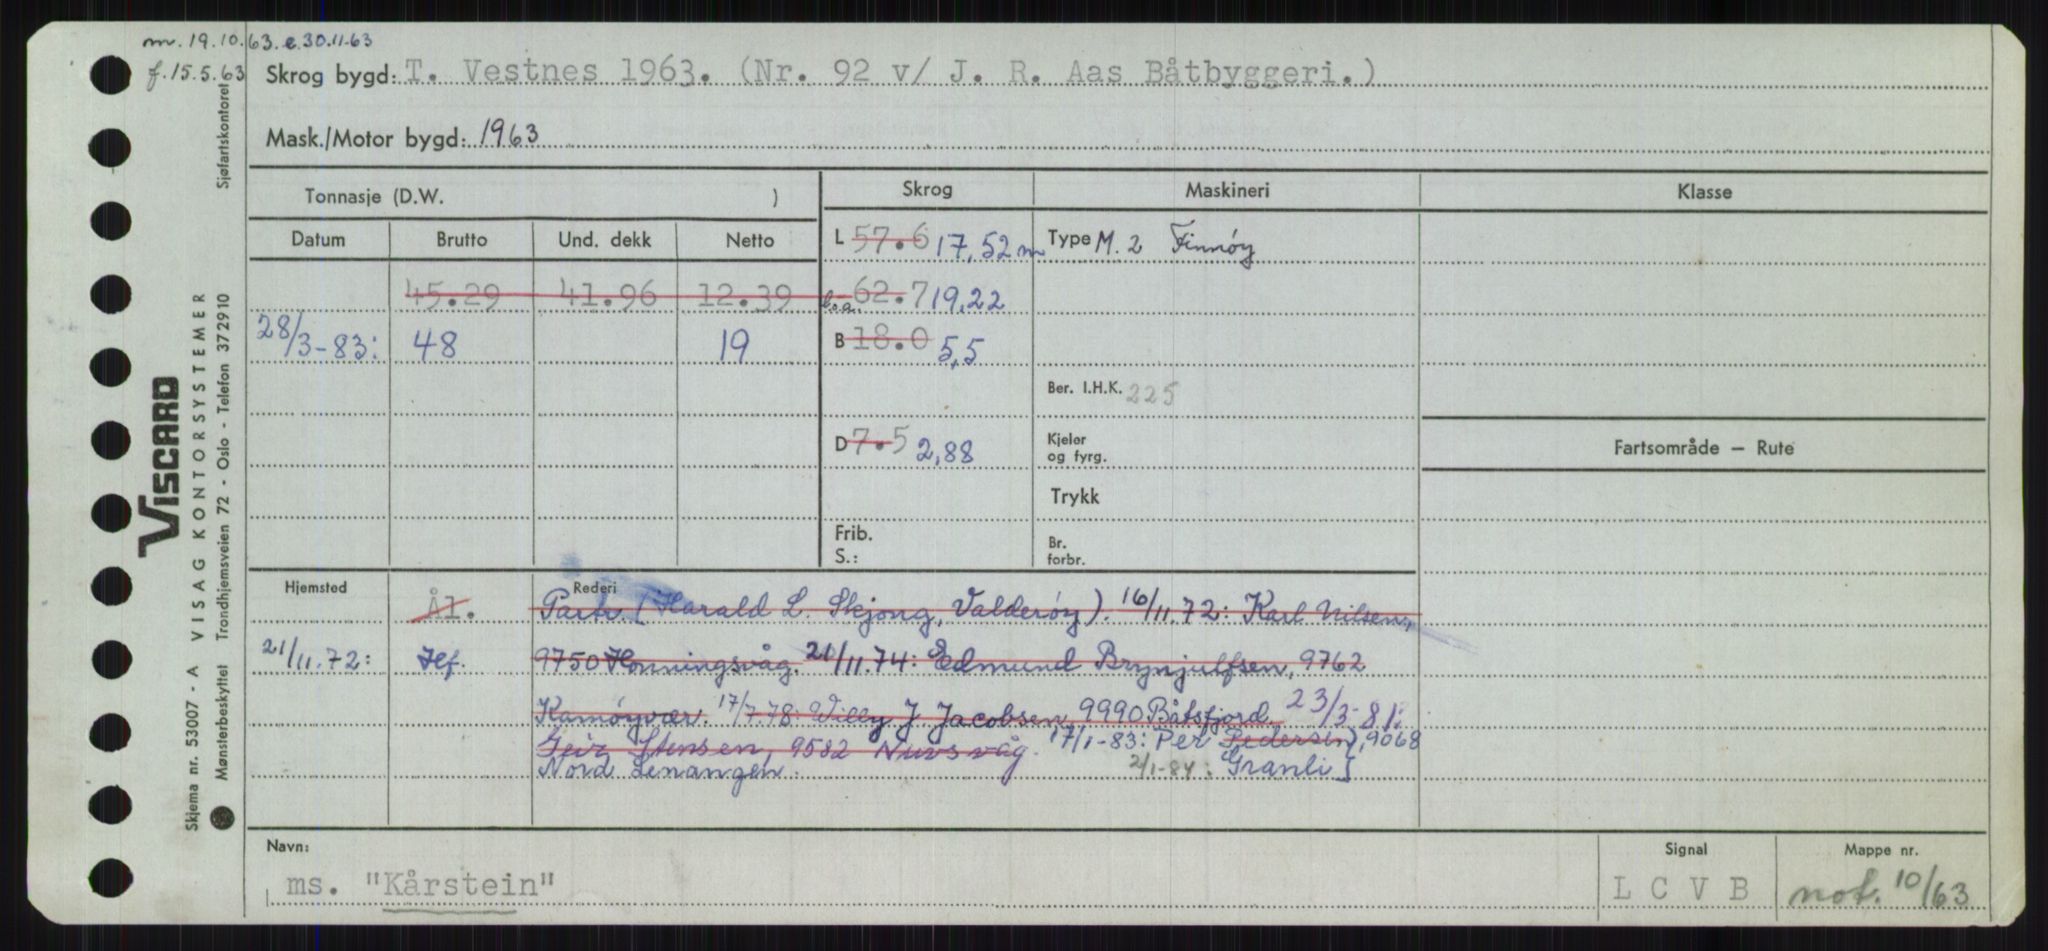 m. 19.10.63. e. 30.11.63
f. 15.5.63
Skrog bygd: T. Vestnes 1963. (Nr. 92 v/ J. R. Aas Båtbyggeri.)
Mask./Motor bygd: 1963
Tonnasje (D.W. )
Skrog Maskineri Klasse
Datum Brutto Und. dekk Netto
L 57.6 17,52 m Type M. 2 Finnøy
45.29 41.96 12.39 l.o.a. 62.7 19,22
28/3-83: 48 19 B 18.0 5,5
Ber. I.H.K. 225
D 7.5 2,88 Kjeler
og fyrg.
Fartsområde — Rute
Trykk
Frib.
S.:
Br.
forbr.
Hjemsted Rederi
Ål. Partr. (Harald L. Skjong, Valderøy). 16/11.72: Karl Nilsen,
21/11.72: Hf. 9750 Honningsvåg. 21/11.74: Edmund Brynjulfsen, 9762
Kamøyvær. 17/7.78: Willy J Jacobsen, 9990 Båtsfjord. 23/3-81:
Geir Stensen, 9582 Nuvsvåg. 17/1-83: Per Pedersen, 9068
Nord Lenangen. 2/1-84: Granli]
Navn: Signal Mappe nr.
ms. "Kårstein" L C V B not. 10/63
Sjøfartskontoret
VISCARD
VISAG KONTORSYSTEMER
Trondhjemsveien 72 - Oslo - Telefon 372910
Skjema nr. 53007 - A
Mønsterbeskyttet